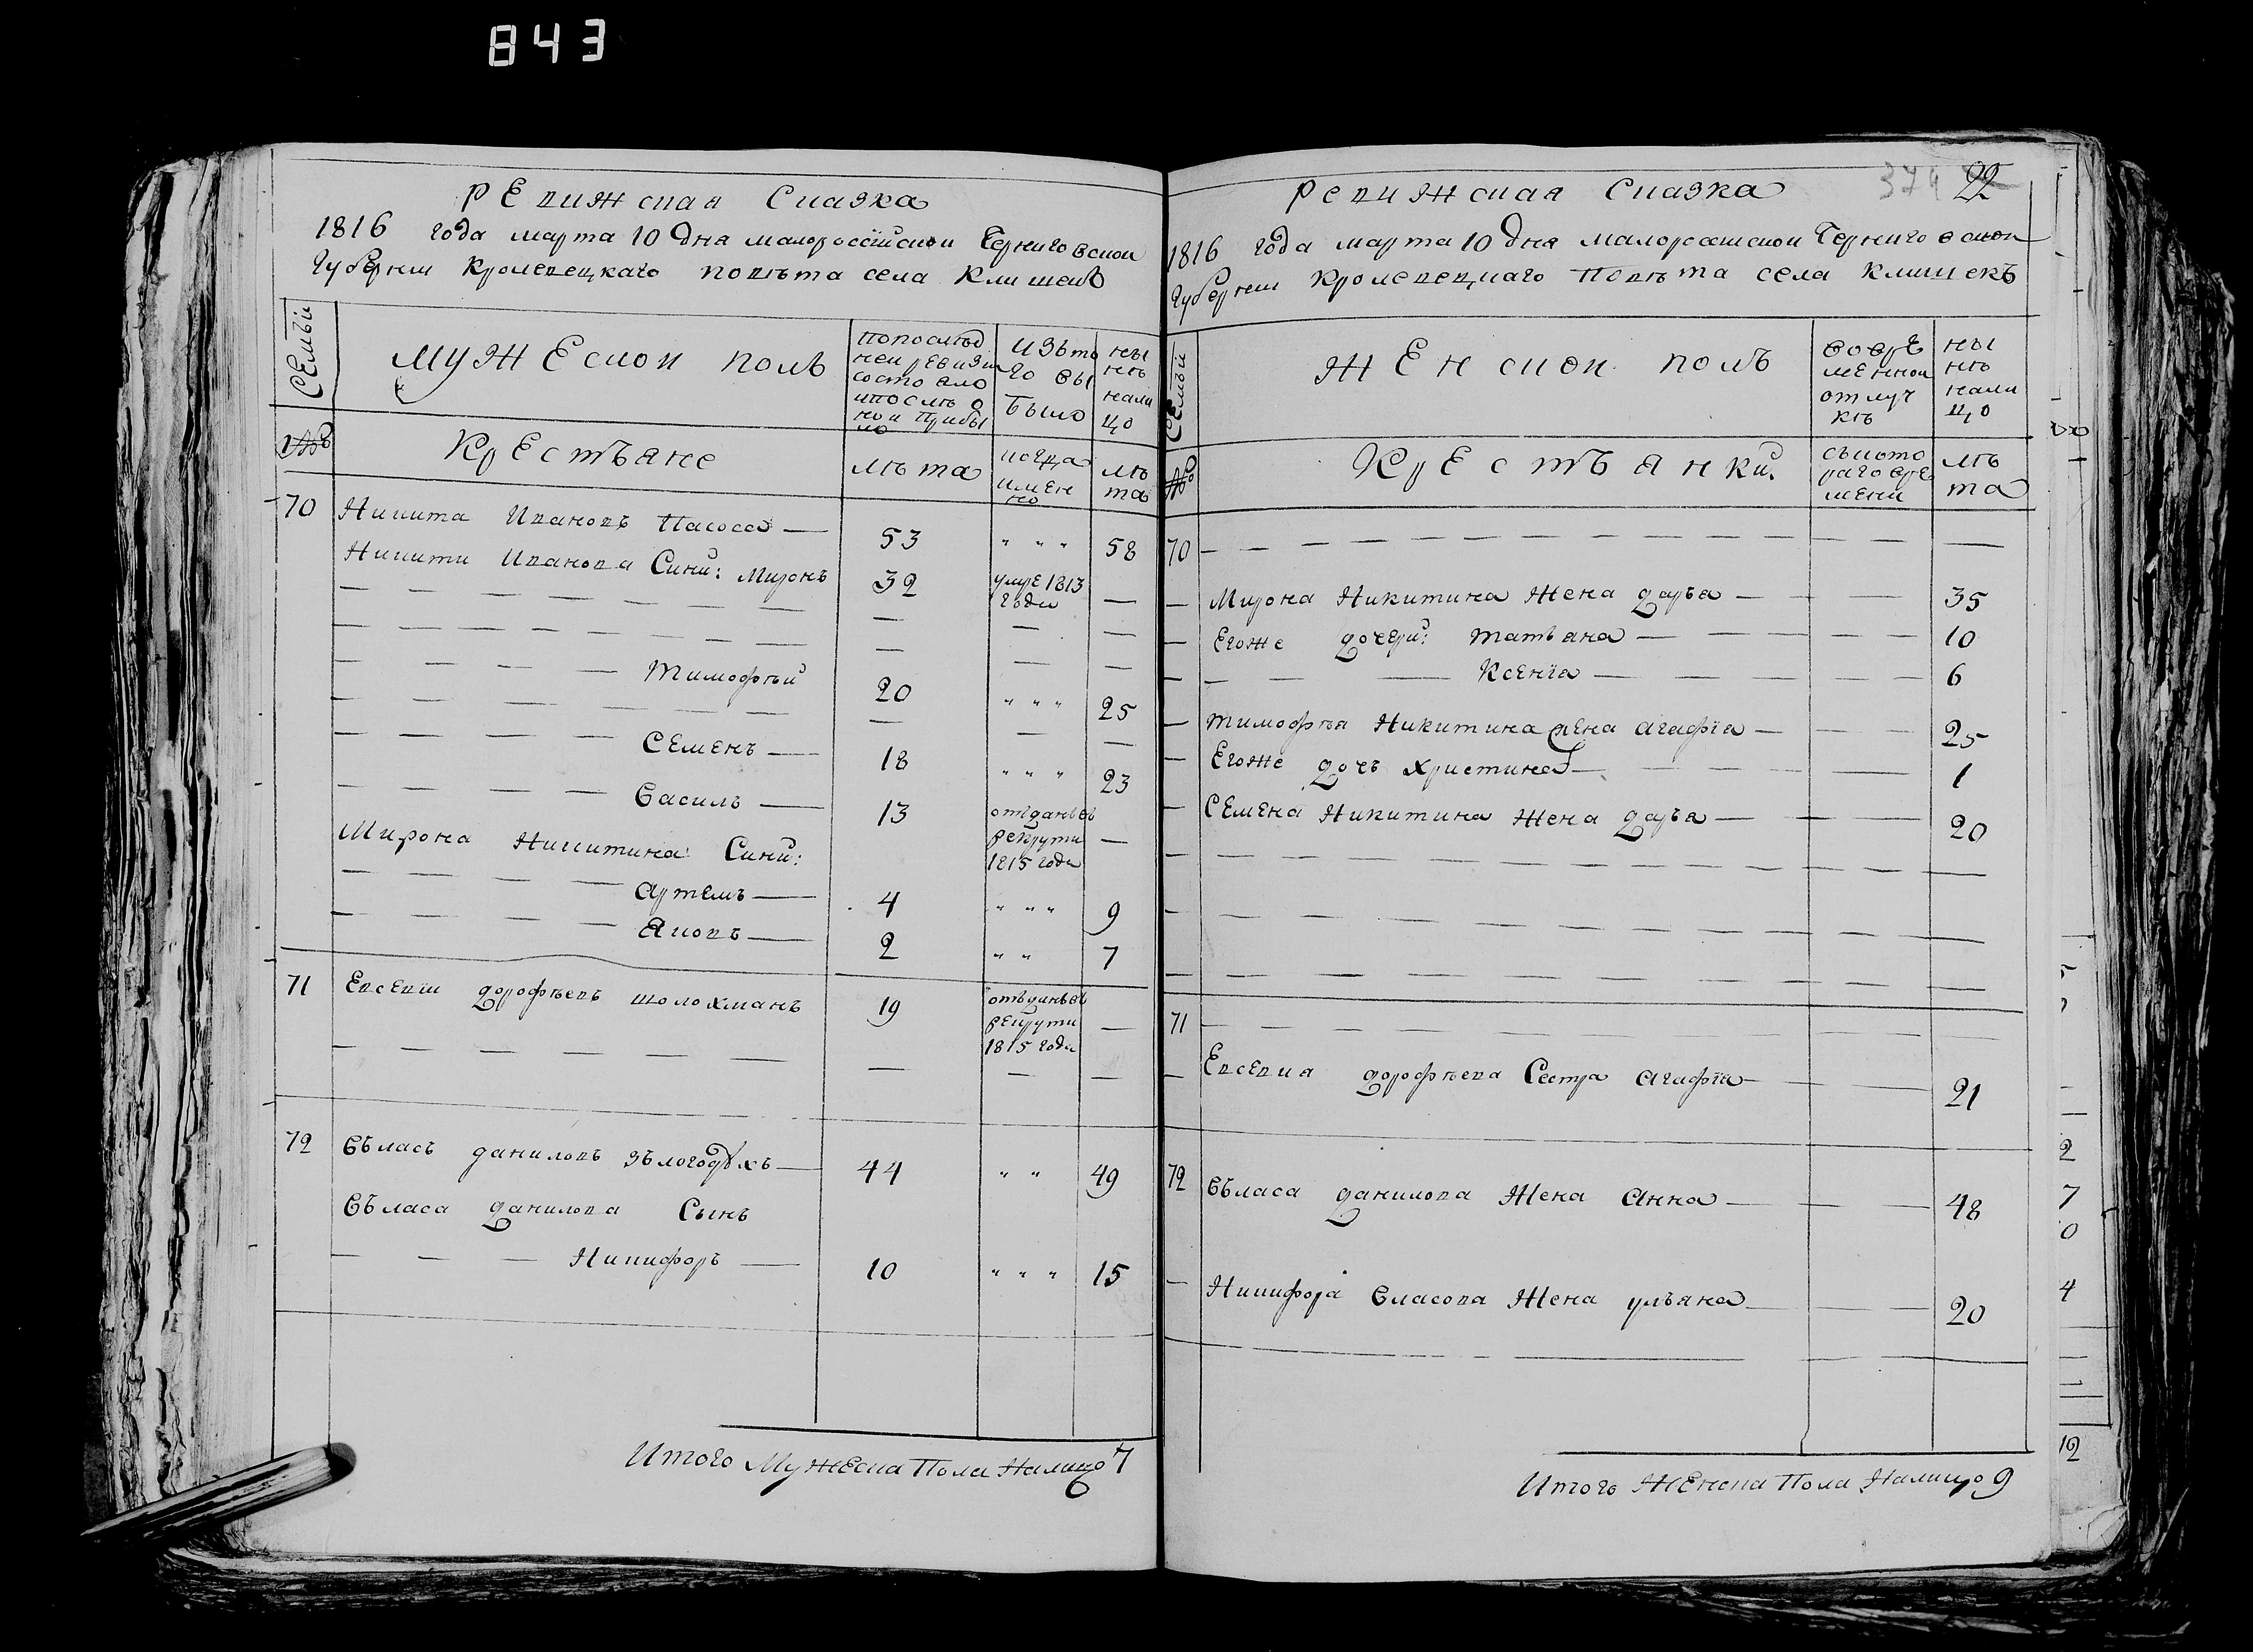 843
Ревижская Сказка
1816 года марта 10 дня малороссійской Черниговской
Губерніи Кролевецкаго повѣта села Клишекъ
Семьи
Мужеской полъ
по послѣд
ней ревизіи
состояло
и послѣ о
ной прибы
ло
изъ то
го вы
было
ны
нѣ
нали
цо
№
Крестьяне
лѣта
когда
имен
но
лѣ
та
70 Никита Ивановъ Пасоса — 53 " " " 58
Никити Иванова Сини: Миронъ 32 умре 1813 —
года
Тимофѣй 20 " " " 25
Семенъ — 18 " " " 23
Василь — 13 отданъ въ
рекрути —
1815 года
Мирона Никитина Сини:
Артемъ — 4 " " " 9
Яковъ — 2 " " 7
71 Евсевіи Дорофѣевъ Шолохманъ 19 отданъ въ
рекрути —
1815 года
72 Въласъ Даниловъ Зълогодухъ — 44 " " 49
Въласа Данилова Сынъ
Никифоръ — 10 " " " 15
Итого Мужеска Пола Налицо 7
374 22
Ревижская Сказка
1816 года марта 10 дня малоросійской Черниговской
Губерніи Кролевецкаго Повѣта села Клишекъ
Семьи
Женской полъ
во вре
менной
отлуч
кѣ
ны
нѣ
нали
цо
№
Крестьянки
съ кото
раго вре
мени
лѣ
та
70
Мирона Никитина Жена Дарья — 35
Егоже дочери: Татьяна — 10
Ксенія — 6
Тимофѣя Никитина жена Агафія — 25
Егоже дочь Христина — 1
Семена Никитина Жена Дарья — 20
71
Евсевия Дорофѣева Сестра Агафія — 21
72 Въласа Данилова Жена Анна — 48
Никифора Власова Жена Ульяна — 20
Итого Женска Пола Налицо 9
2
7
0
4
12